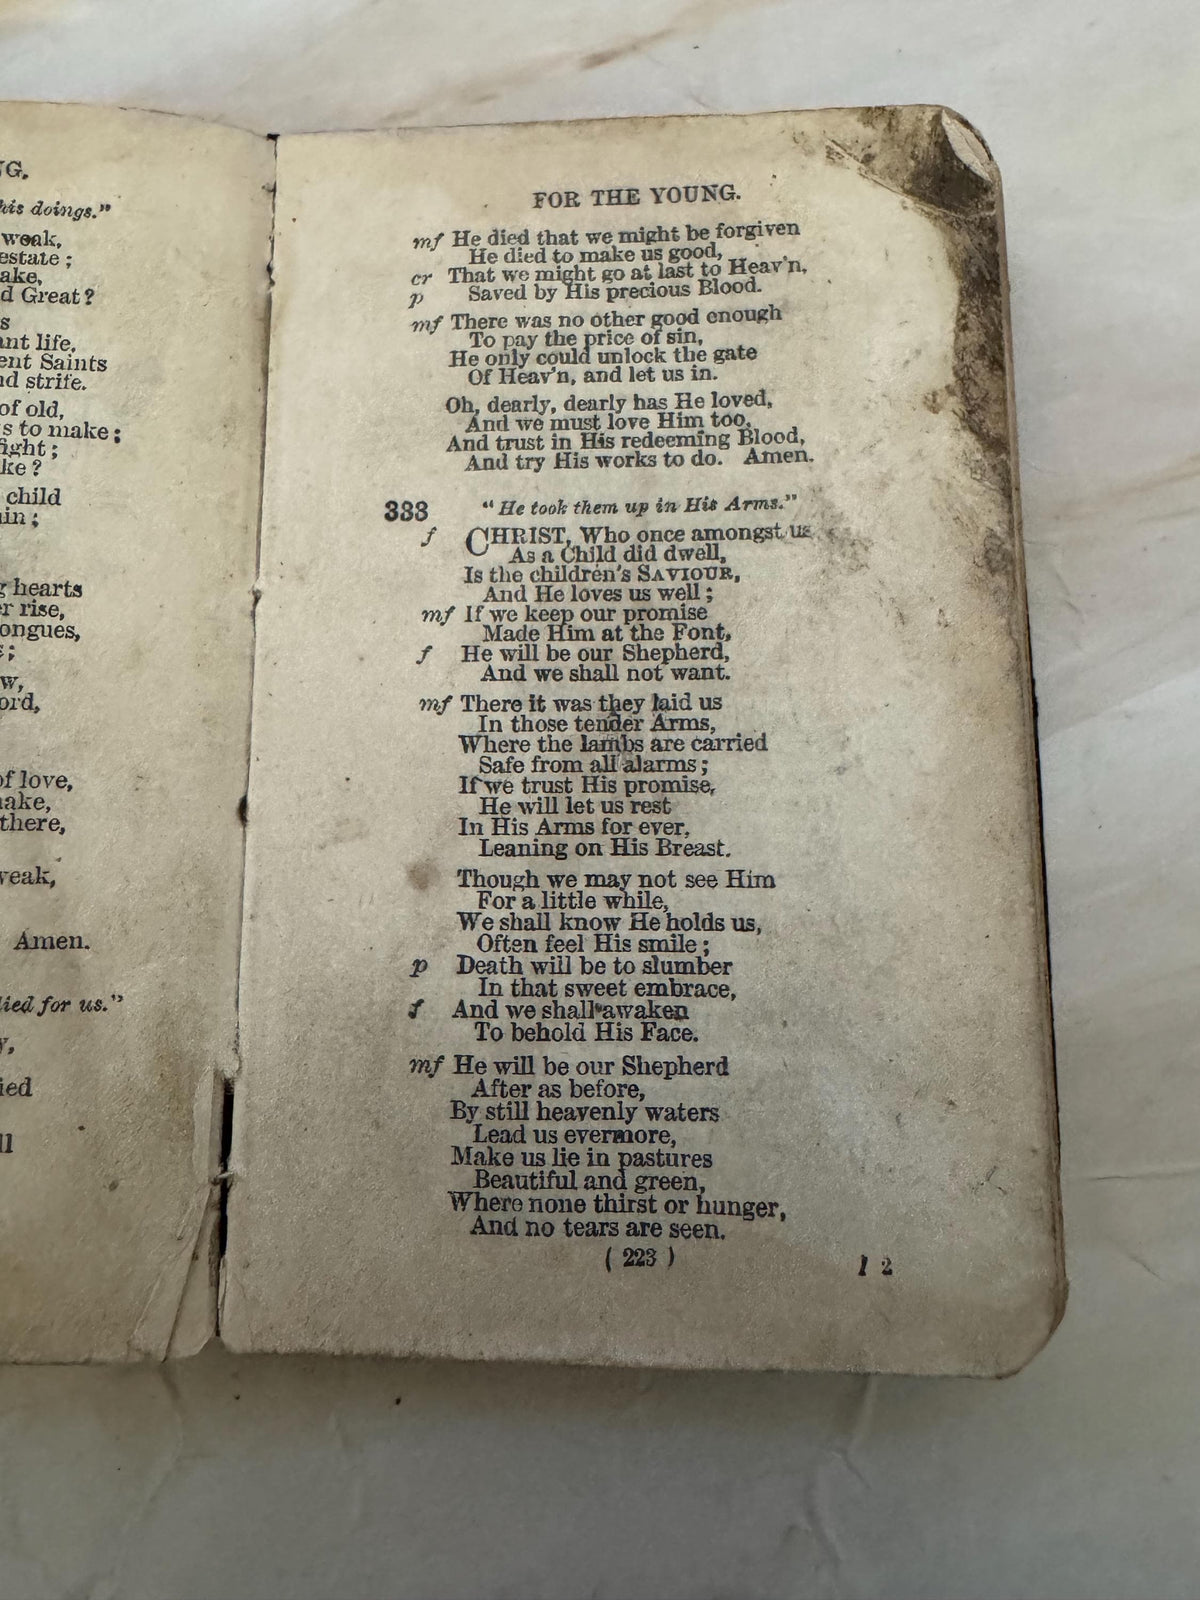 NG.
his doings."
weak,
estate ;
ake,
d Great ?
s
ant life,
ent Saints
nd strife.
of old,
s to make ;
fight ;
ke ?
child
in ;
g hearts
er rise,
ongues,
;
w,
ord,
of love,
make,
there,
weak,
Amen.
died for us."
y,
ied
ll
FOR THE YOUNG.
mf He died that we might be forgiven
He died to make us good,
cr That we might go at last to Heav'n,
p Saved by His precious Blood.
mf There was no other good enough
To pay the price of sin,
He only could unlock the gate
Of Heav'n, and let us in.
Oh, dearly, dearly has He loved,
And we must love Him too,
And trust in His redeeming Blood,
And try His works to do. Amen.
333 "He took them up in His Arms."
f CHRIST, Who once amongst us
As a Child did dwell,
Is the children's SAVIOUR,
And He loves us well ;
mf If we keep our promise
Made Him at the Font,
f He will be our Shepherd,
And we shall not want.
mf There it was they laid us
In those tender Arms,
Where the lambs are carried
Safe from all alarms ;
If we trust His promise,
He will let us rest
In His Arms for ever,
Leaning on His Breast.
Though we may not see Him
For a little while,
We shall know He holds us,
Often feel His smile ;
p Death will be to slumber
In that sweet embrace,
f And we shall awaken
To behold His Face.
mf He will be our Shepherd
After as before,
By still heavenly waters
Lead us evermore,
Make us lie in pastures
Beautiful and green,
Where none thirst or hunger,
And no tears are seen.
( 223 )
I 2